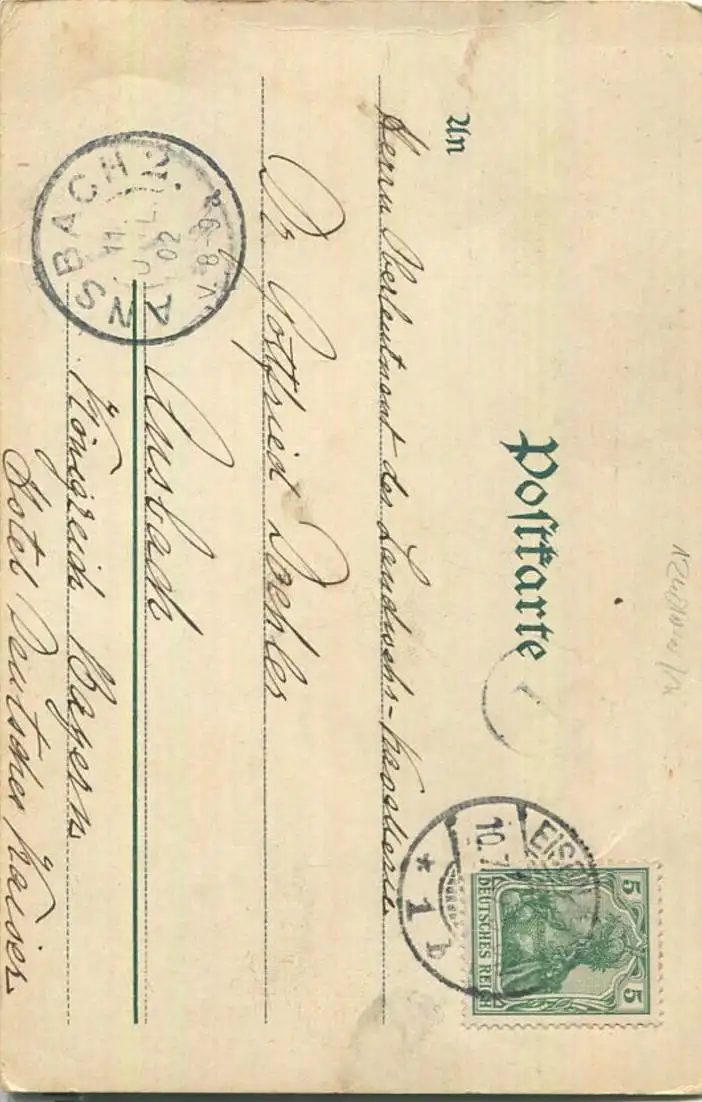 Postkarte
An
Herrn Oberleutnant der Landwehr-Kavallerie
Dr Gottfried Doehler
Ansbach
Königreich Bayern
Hotel Deutscher Kaiser
ANSBACH 2.
11 JUL 02
V. 8-9
EISEN
10.7
* 1 b
5 5
DEUTSCHES REICH